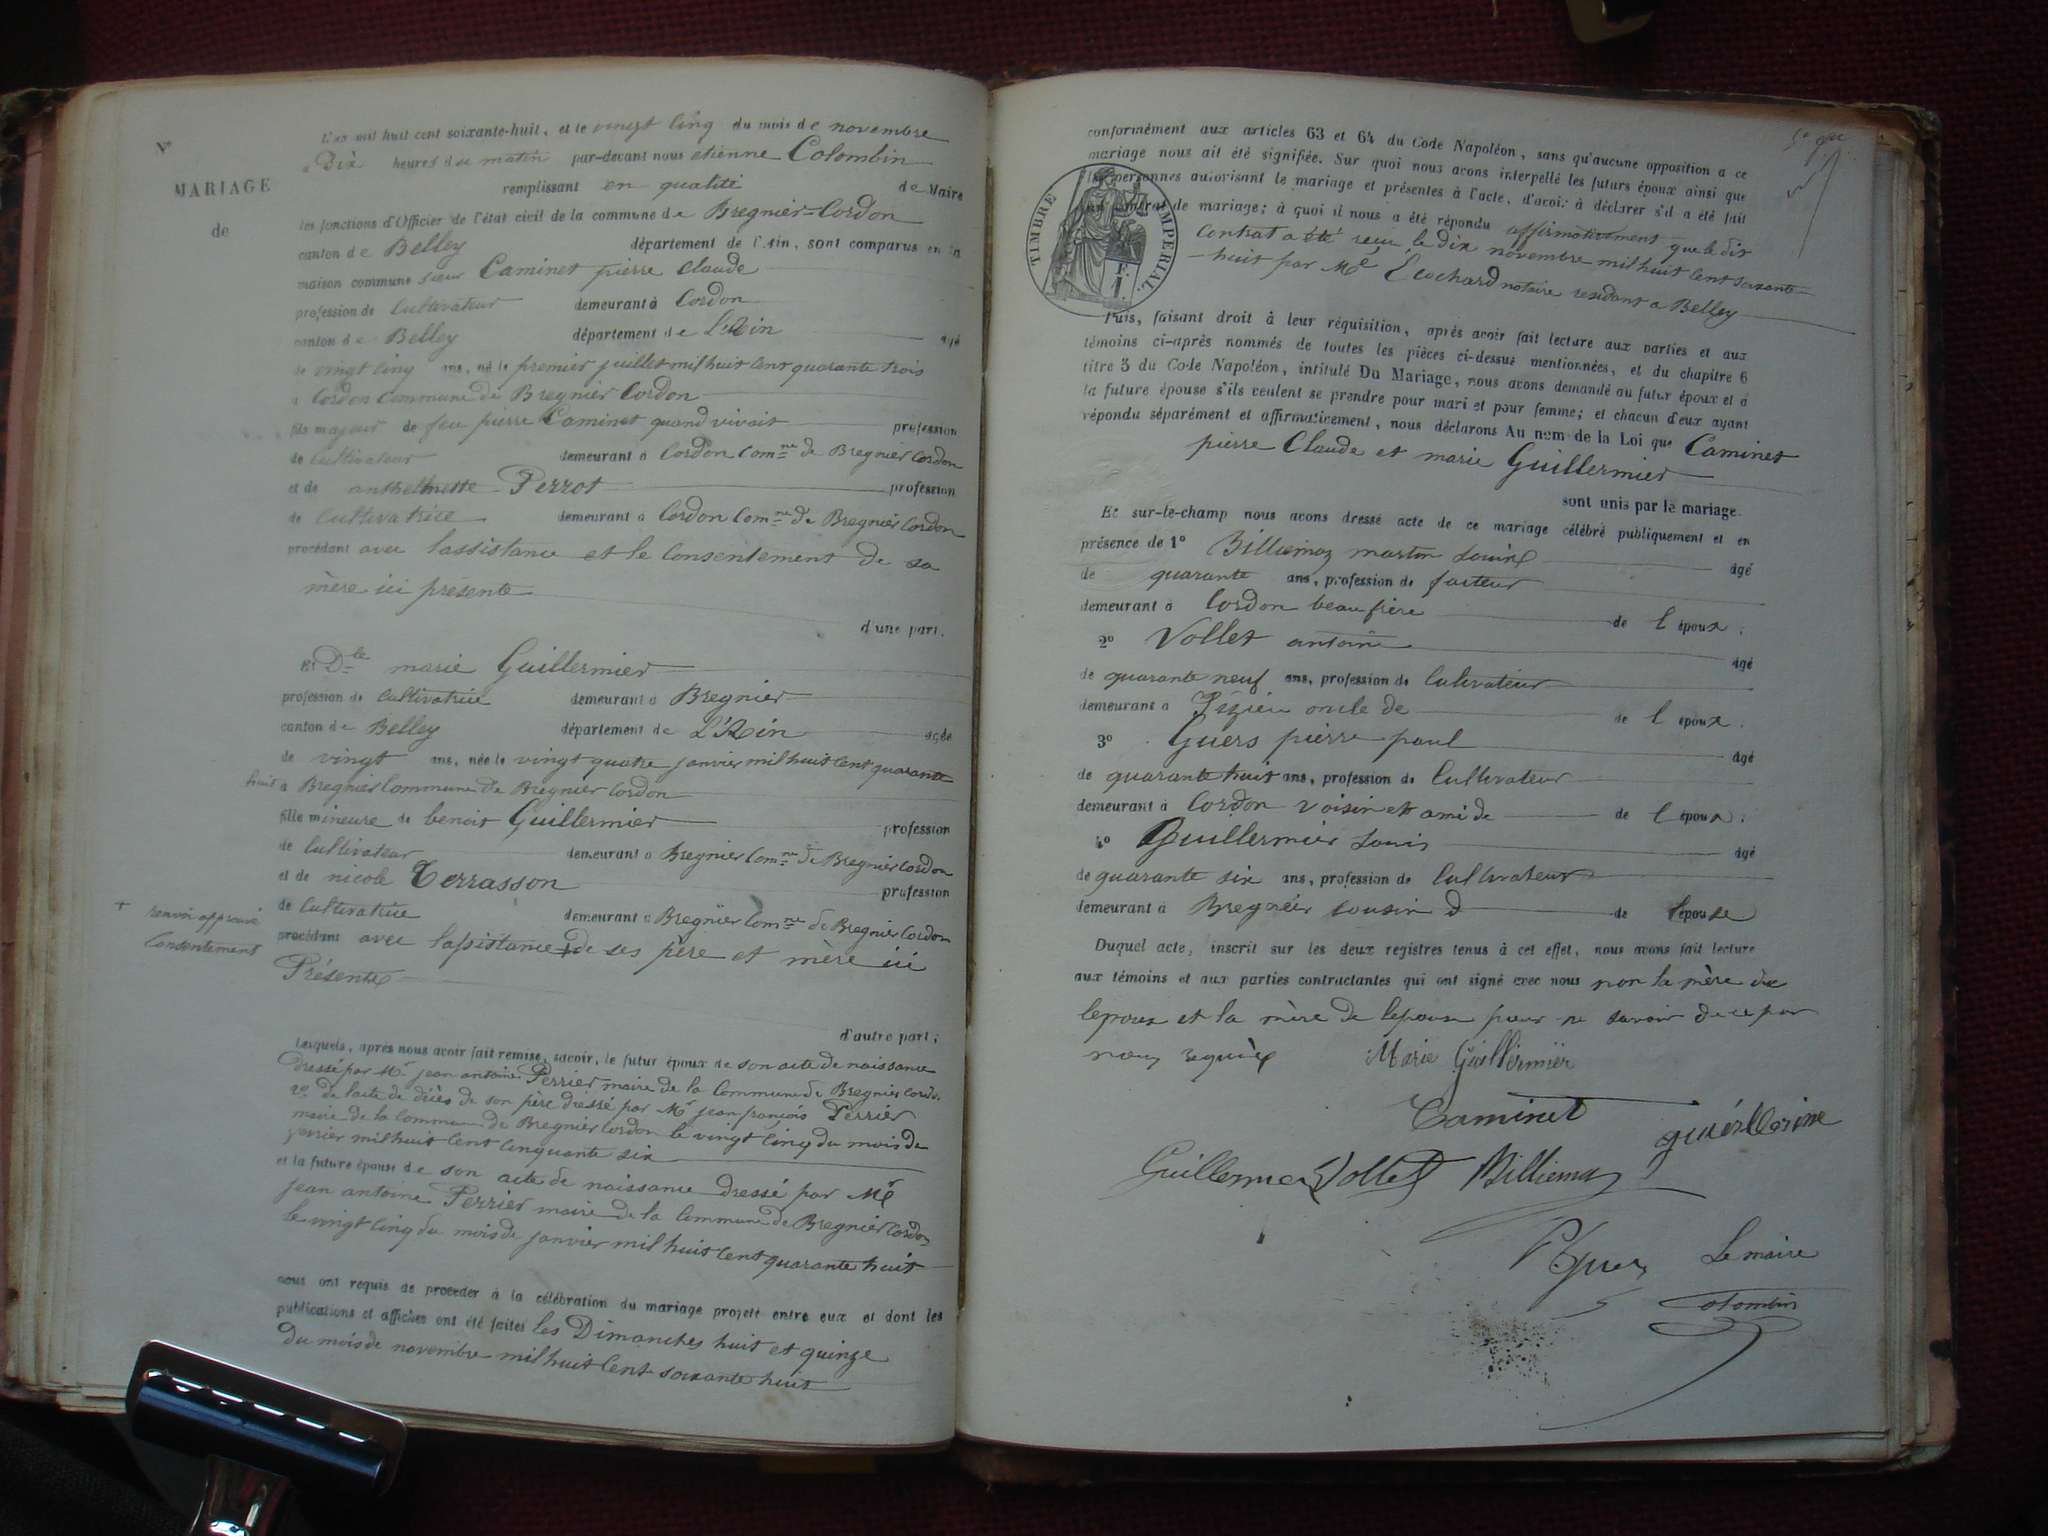 N°
MARIAGE
de
L'an mil huit cent soixante-huit, et le vingt cinq du mois de novembre
a Dix heures du matin par-devant nous etienne Colombin
remplissant en qualité de Maire
les fonctions d'Officier de l'état civil de la commune de Bregnier-Cordon
canton de Belley département de l'Ain, sont comparus en la
maison commune sieur Caminet pierre Claude
profession de Cultivateur demeurant à Cordon
canton de Belley département de L'Ain agé
de vingt cinq ans, né le premier juillet mil huit Cent quarante trois
a Cordon Commune de Bregnier Cordon
fils majeur de feu pierre Caminet quand vivait profession
de Cultivateur demeurant à Cordon Comne de Bregnier Cordon
et de anthelmette Perrot profession
de Cultivatrice demeurant à Cordon Comne de Bregnier Cordon
procédant avec lassistance et le Consentement de sa
mère ici présente
d'une part.
Et Dlle marie Guillermier
profession de Cultivatrice demeurant à Bregnier
canton de Belley département de L'Ain agée
de vingt ans, née le vingt quatre janvier mil huit Cent quarante
huit a Bregnier Commune de Bregnier Cordon
fille mineure de benoit Guillermier profession
de Cultivateur demeurant à Bregnier Comne de Bregnier Cordon
et de nicole Terrasson profession
de Cultivatrice demeurant à Bregnier Comne de Bregnier Cordon
+ renvoi approuvé
Consentement
procédant avec lassistance + de ses père et mère ici
Présents
d'autre part;
Lesquels, après nous avoir fait remise, savoir, le futur époux de son acte de naissance
dressé par Mr jean antoine Perrier maire de la Commune de Bregnier Cordon
2o de lacte de décès de son père dressé par Mr jean françois Perrier
maire de la Commune de Bregnier Cordon le vingt Cinq du mois de
janvier mil huit Cent Cinquante six
et la future épouse de son acte de naissance dressé par Mr
jean antoine Perrier maire de la Commune de Bregnier Cordon
le vingt Cinq du mois de janvier mil huit Cent quarante huit
nous ont requis de procéder à la célébration du mariage projeté entre eux et dont les
publications et affiches ont été faites les Dimanches huit et quinze
du mois de novembre mil huit Cent soixante huit
conformément aux articles 63 et 64 du Code Napoléon, sans qu'aucune opposition à ce
mariage nous ait été signifiée. Sur quoi nous avons interpellé les futurs époux ainsi que
les personnes autorisant le mariage et présentes à l'acte, d'avoir à déclarer s'il a été fait
un contrat de mariage; à quoi il nous a été répondu affirmativement que le dit
Contrat a été reçu le dix novembre mil huit Cent soixante
huit par Me Ecochard notaire residant a Belley
TIMBRE IMPERIAL
F. 1
Puis, faisant droit à leur réquisition, après avoir fait lecture aux parties et aux
témoins ci-après nommés de toutes les pièces ci-dessus mentionnées, et du chapitre 6
titre 5 du Code Napoléon, intitulé Du Mariage, nous avons demandé au futur époux et à
la future épouse s'ils veulent se prendre pour mari et pour femme; et chacun d'eux ayant
répondu séparément et affirmativement, nous déclarons Au nom de la Loi que Caminet
pierre Claude et marie Guillermier
sont unis par le mariage.
Et sur-le-champ nous avons dressé acte de ce mariage célébré publiquement et en
présence de 1° Billiemaz martin Louis agé
de quarante ans, profession de facteur
demeurant à Cordon beau frère de l époux.
2° Vollet antoine agé
de quarante neuf ans, profession de Cultivateur
demeurant à Izieu oncle de de l époux.
3° Guers pierre paul agé
de quarante huit ans, profession de Cultivateur
demeurant à Cordon voisin et ami de de l époux.
4° Guillermier Louis agé
de quarante six ans, profession de Cultivateur
demeurant à Bregnier Cousin d de lépouse
Duquel acte, inscrit sur les deux registres tenus à cet effet, nous avons fait lecture
aux témoins et aux parties contractantes qui ont signé avec nous non la mère de
lepoux et la mère de lepouse pour ne savoir de ce par
nous requises Marie Guillermier
Caminet
Guillermier Vollet Billiemaz
P Guers Le maire
Colombin